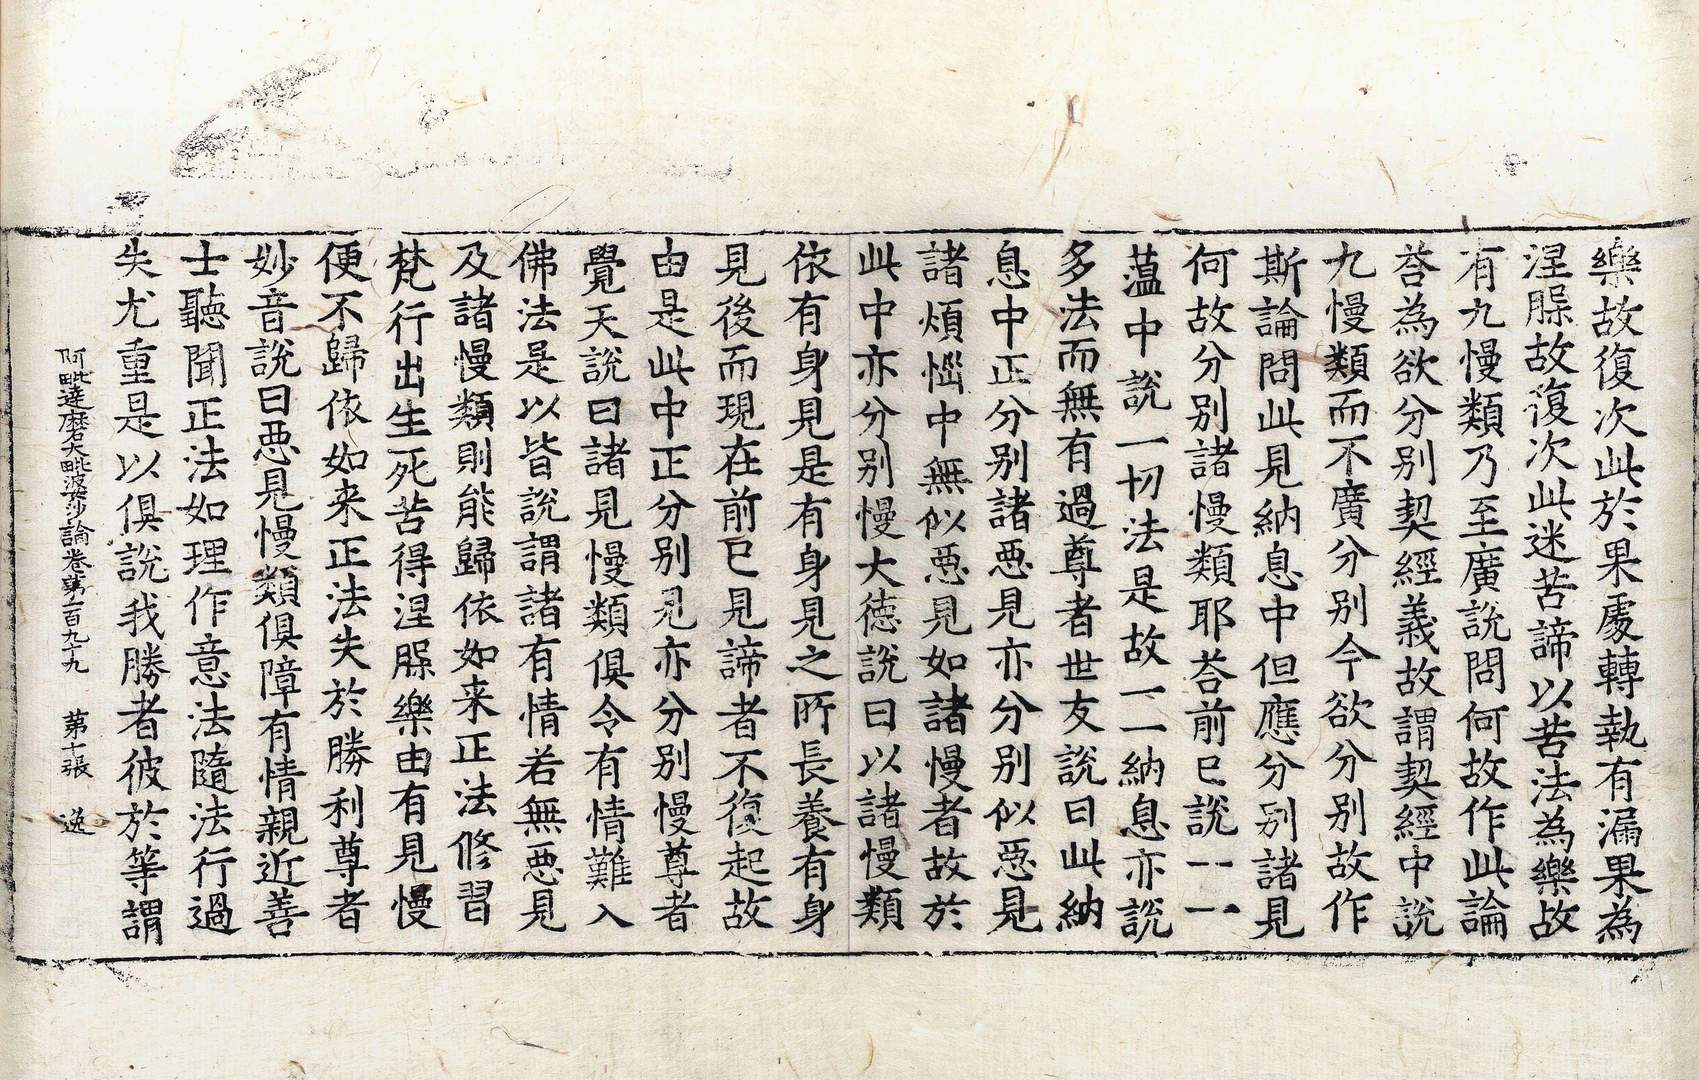 樂故復次此於果處轉執有漏果為
涅槃故復次此迷苦諦以苦法為樂故
有九慢類乃至廣說問何故作此論
荅為欲分別契經義故謂契經中說
九慢類而不廣分別今欲分別故作
斯論問此見納息中但應分別諸見
何故分別諸慢類耶荅前已說一一
蘊中說一切法是故一一納息亦說
多法而無有過尊者世友說曰此納
息中正分別諸惡見亦分別似惡見
諸煩惱中無似惡見如諸慢者故於
此中亦分別慢大德說曰以諸慢類
依有身見是有身見之所長養有身
見後而現在前已見諦者不復起故
由是此中正分別見亦分別慢尊者
覺天說曰諸見慢類俱令有情難入
佛法是以皆說謂諸有情若無惡見
及諸慢類則能歸依如来正法修習
梵行出生死苦得涅槃樂由有見慢
便不歸依如来正法失於勝利尊者
妙音說曰惡見慢類俱障有情親近善
士聽聞正法如理作意法隨法行過
失尤重是以俱說我勝者彼於等謂
阿毗達磨大毗婆沙論卷第一百九十九 第十張 逸